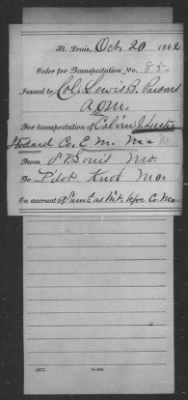 St. Louis, Oct 20 1862
Order for Transportation No. 85
Issued to Col. Lewis B. Parsons
A.Q.M.
For transportation of Calvin
Stodard Co. E. M. M.
From St Louis Mo.
To Pilot Knob Mo.
On account of